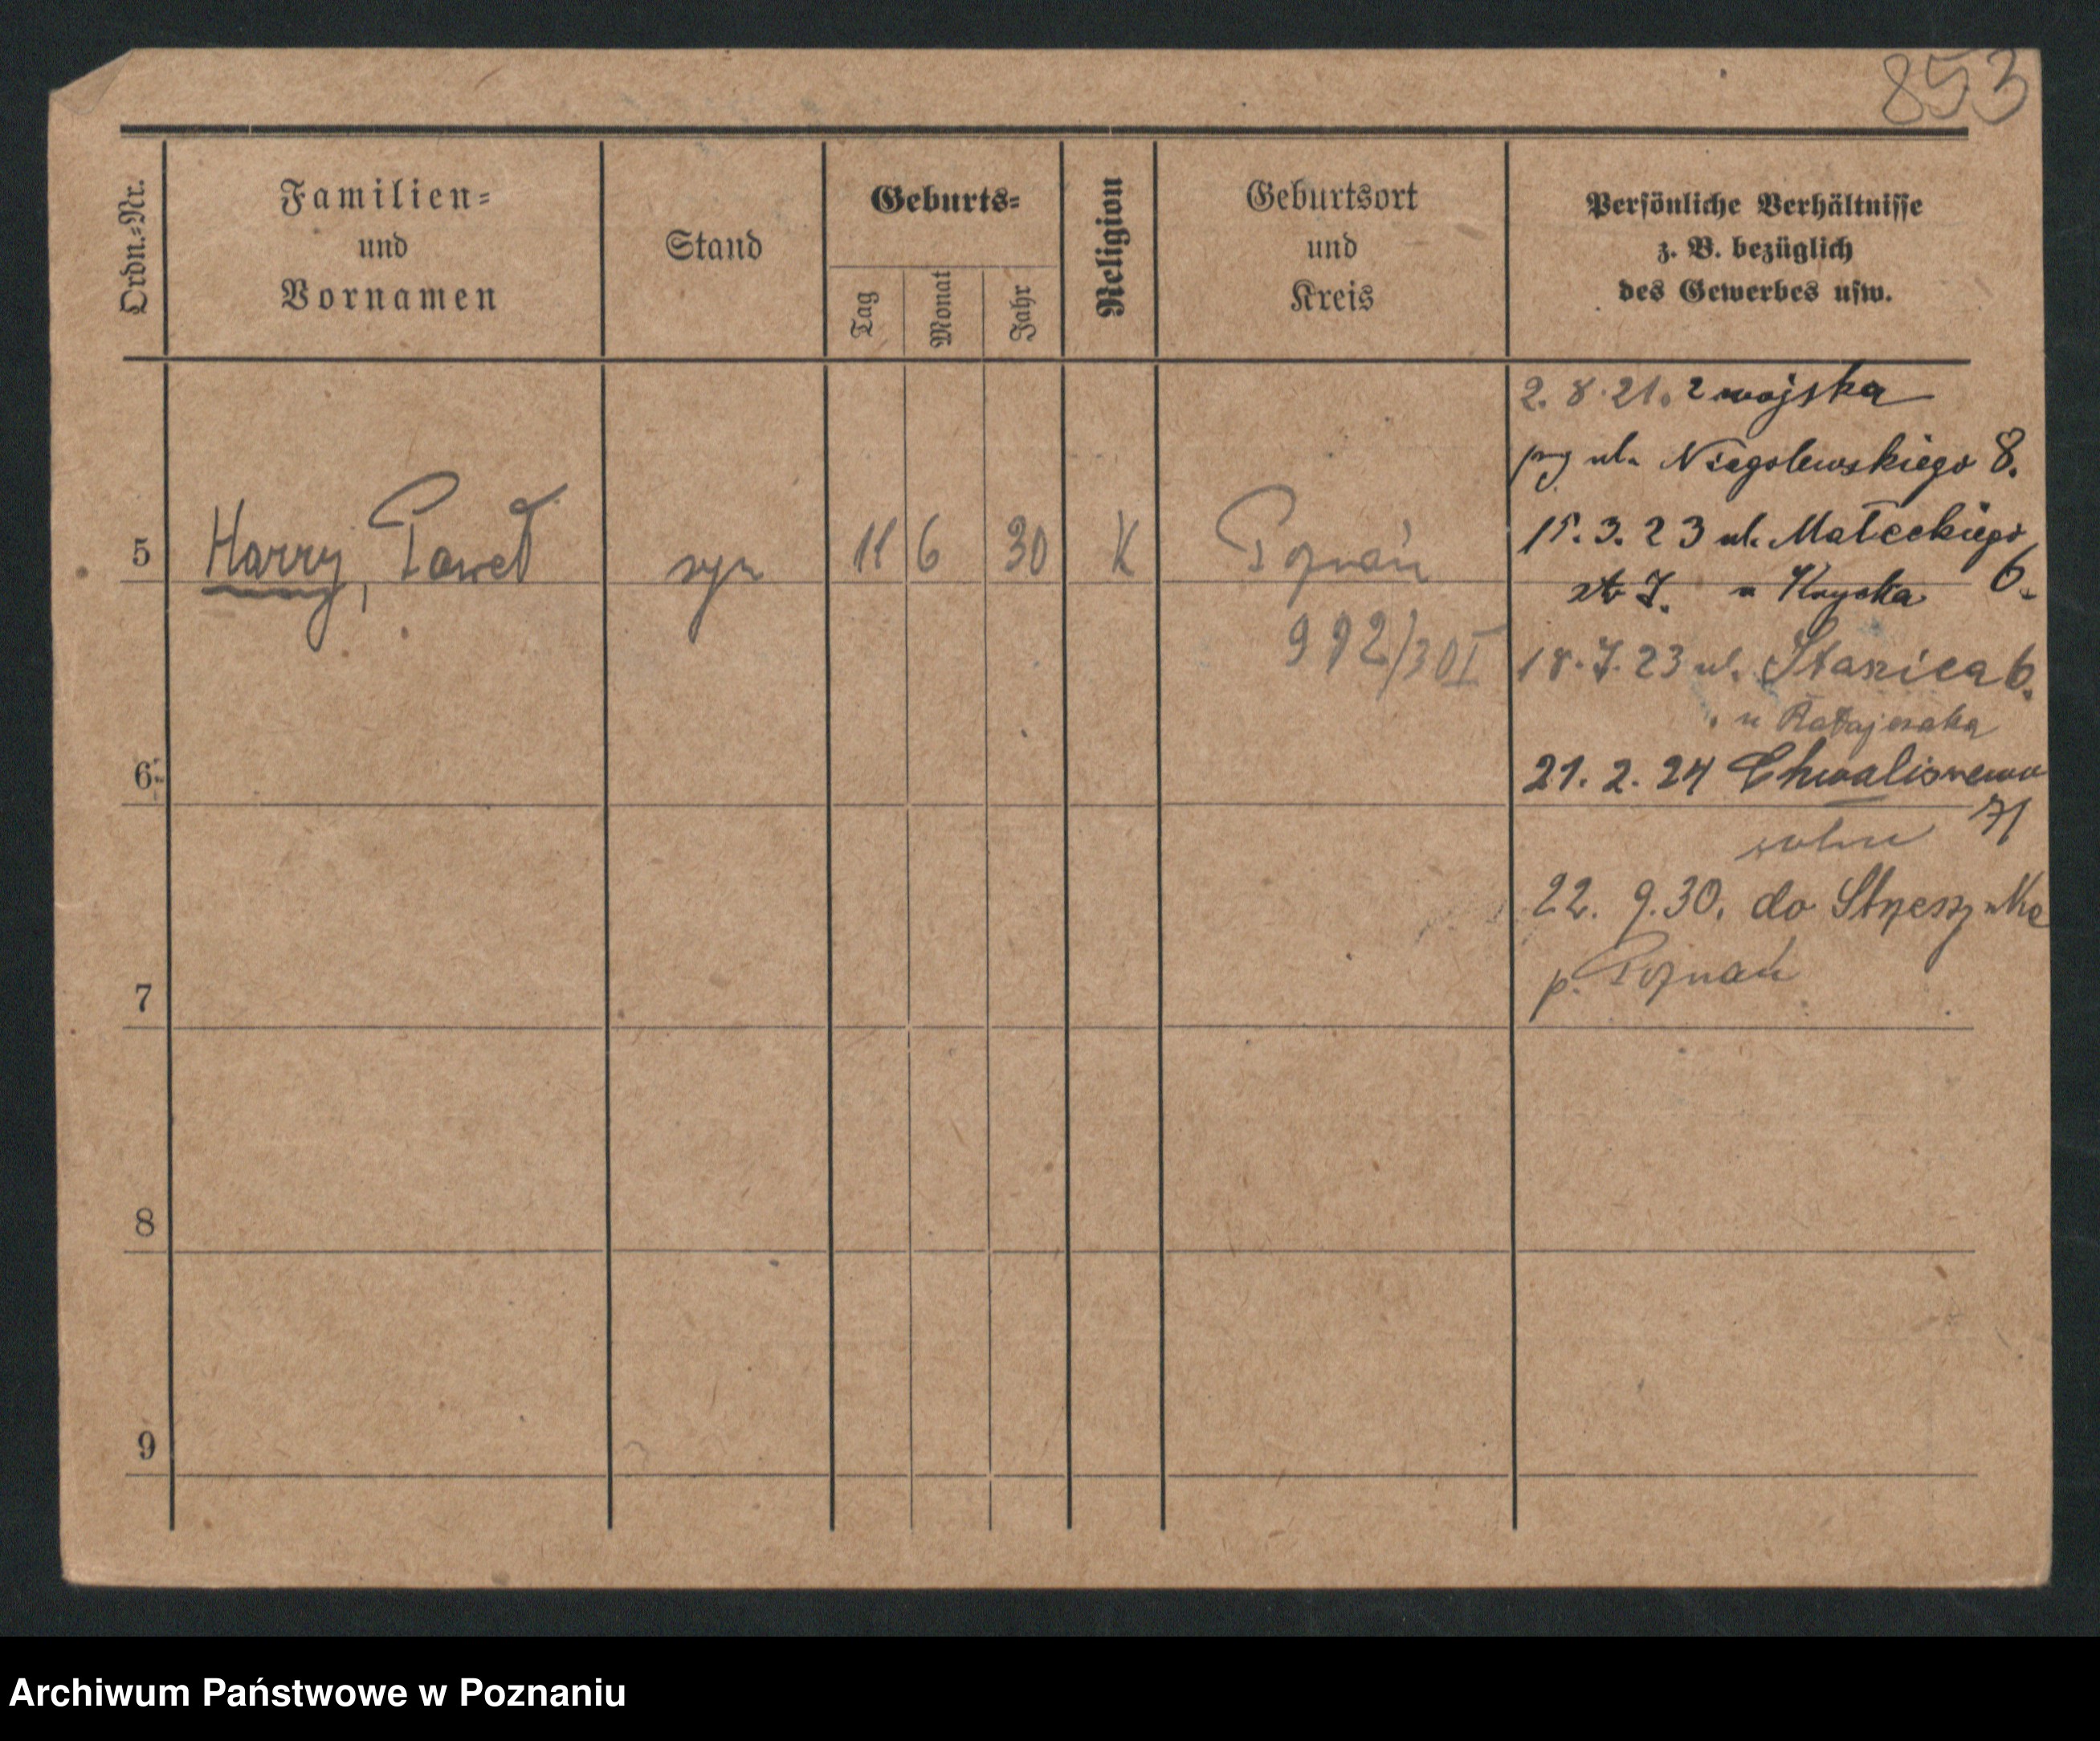 853
Ordn.-Nr.
Familien-
und
Vornamen
Stand
Geburts-
Tag
Monat
Jahr
Religion
Geburtsort
und
Kreis
Persönliche Verhältnisse
z. B. bezüglich
des Gewerbes usw.
2. 8. 21. z wojska
ul. Niegolewskiego 8.
15. 3. 23 ul. Małeckiego
6.
5 Harry, Paweł syn 11 6 30 K Poznań
992/30 I
18. 7. 23 ul. Staszica 6.
u Ratajczaka
6
21. 2. 24 Chwaliszewo
71
22. 9. 30. do
p. Poznań
7
8
9
Archiwum Państwowe w Poznaniu